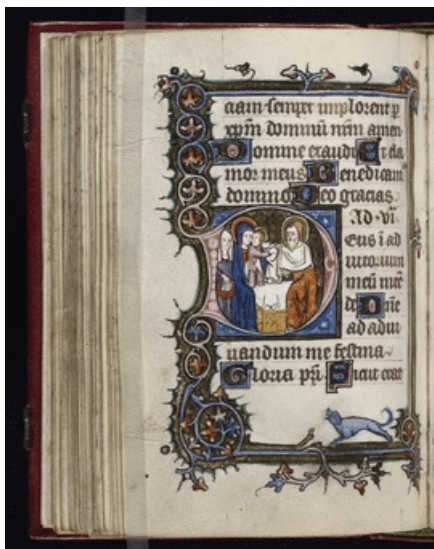 ciam semper implorent p
xpm dominū nrm amen
Domine exaudi Et cla
mor meus Benedicam
domino Deo gracias.
Ad .vi.
Eus ī ad
iutorium
meū
de Dne
ad adiu
uandum me festina
Gloria pri Sicut erat